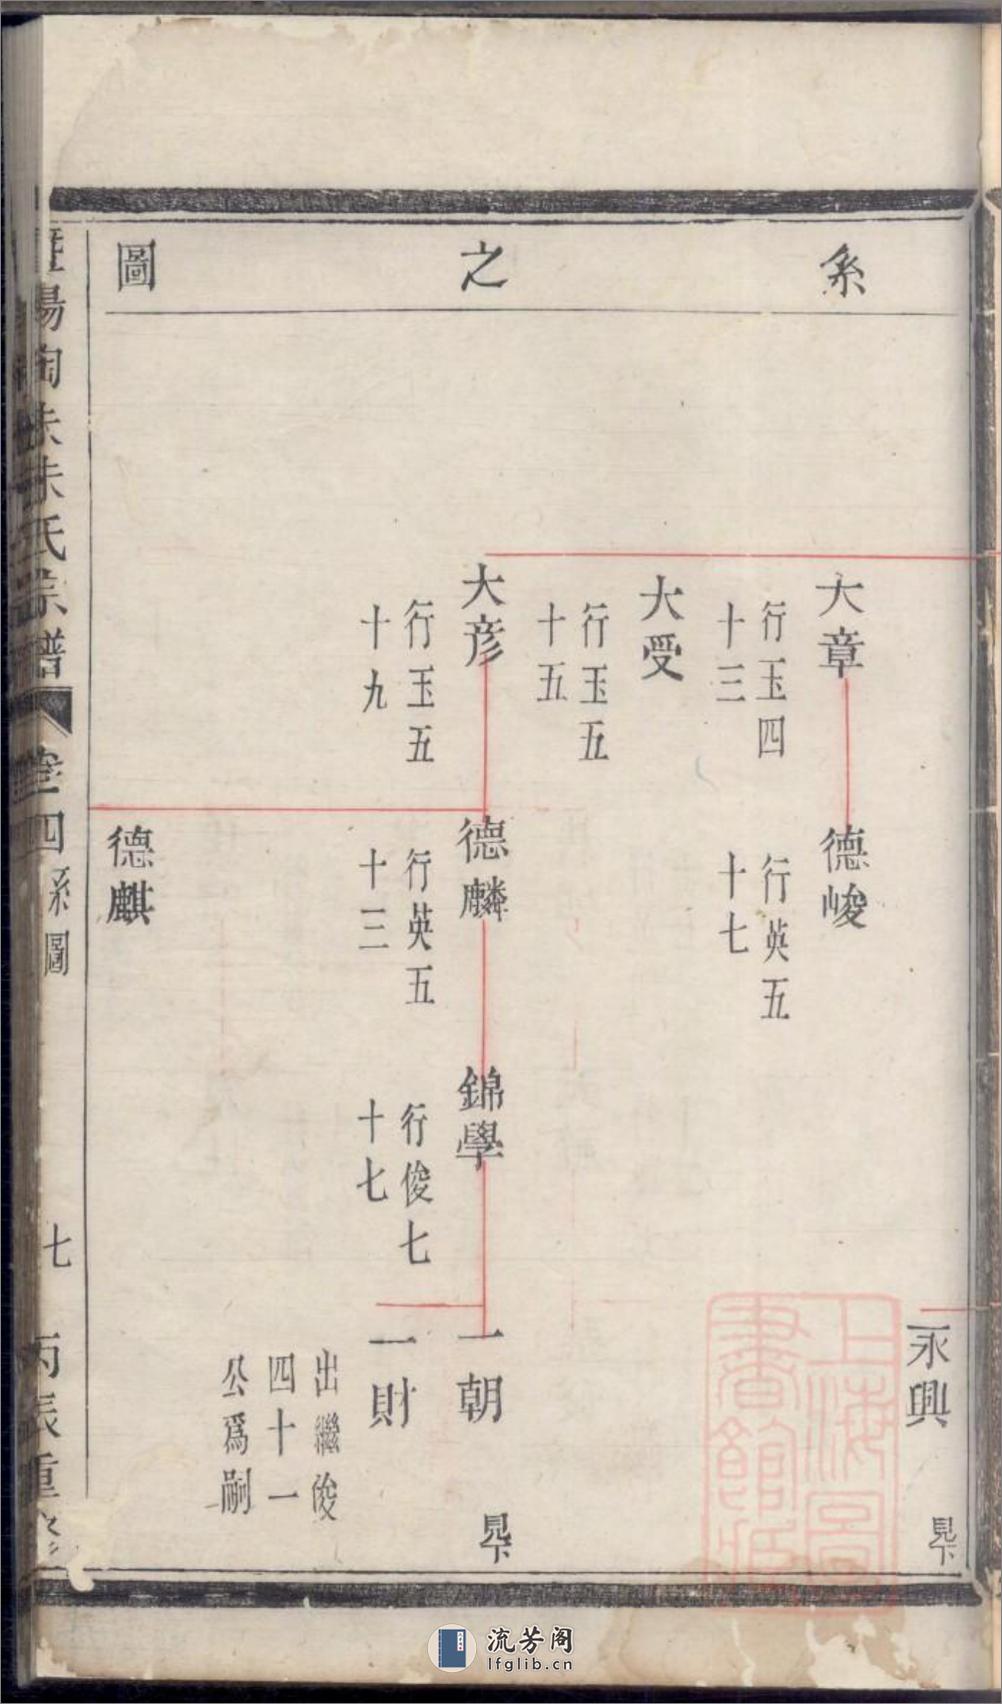 系之圖
大章
行玉四
十三
德峻
行英五
十七
永興
見下
大受
行玉五
十五
大彦
行玉五
十九
德麟
行英五
十三
錦學
行俊七
十七
一朝
見下
一財
出繼俊
四十一
公爲嗣
德麒
暨陽陶朱朱氏宗譜
卷四
系圖
七
丙辰重修
上海圖書館藏
流芳阁
lfglib.cn